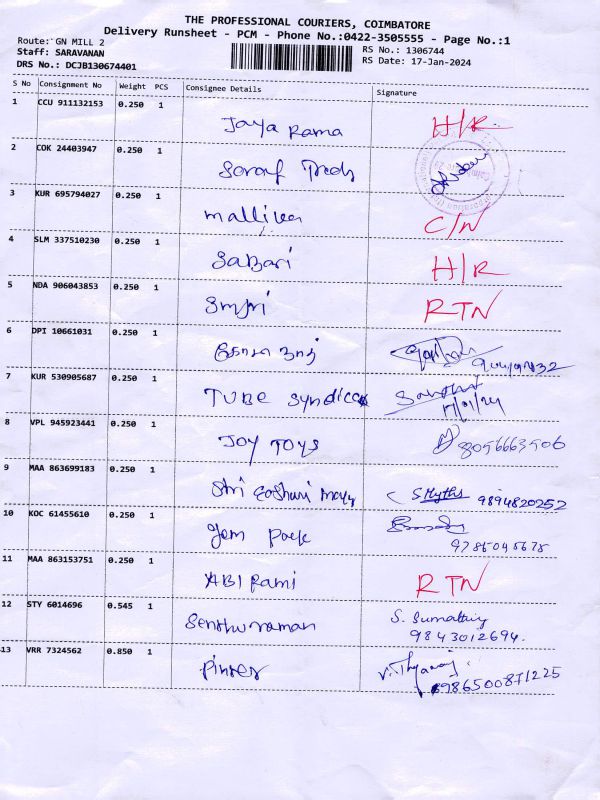 THE PROFESSIONAL COURIERS, COIMBATORE
Delivery Runsheet - PCM - Phone No.:0422-3505555 - Page No.:1
Route: GN MILL 2
RS No.: 1306744
Staff: SARAVANAN
RS Date: 17-Jan-2024
DRS No.: DCJB130674401
S No Consignment No Weight PCS Consignee Details Signature
1 CCU 911132153 0.250 1 Jaya Rama H/R
2 COK 24403947 0.250 1
3 KUR 695794027 0.250 1 C/N
4 SLM 337510230 0.250 1 SaBari H/R
5 NDA 906043853 0.250 1 RTN
6 DPI 10661031 0.250 1
7 KUR 530905687 0.250 1 TUBE Syndicate
17/01/24
8 VPL 945923441 0.250 1 JOY TOYS 8056663506
9 MAA 863699183 0.250 1 Sri 9894820252
10 KOC 61455610 0.250 1
11 MAA 863153751 0.250 1 ABI Rami RTN
12 STY 6014696 0.545 1 Senthuraman S. Sumathy
9843012694.
13 VRR 7324562 0.850 1